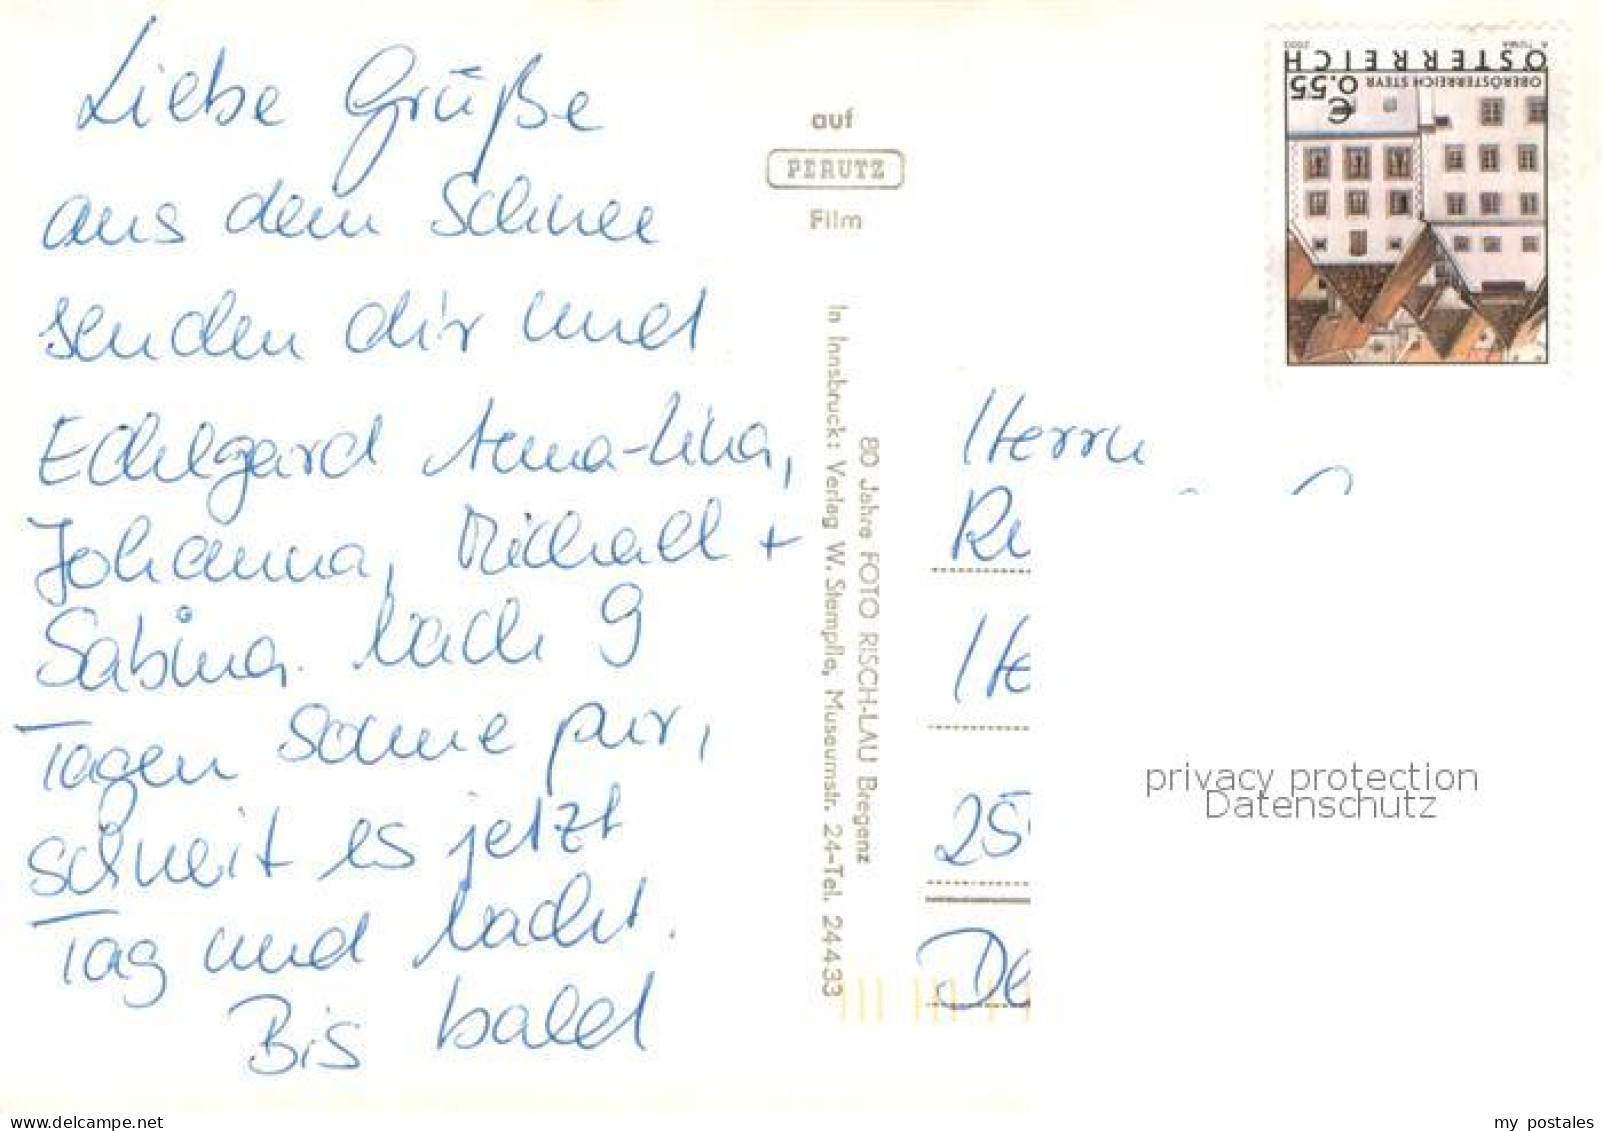 Liebe Grüße
aus dem Schnee
senden dir und
Edelgard Anna-Lina,
Johanna, Michael +
Sabina. Nach 9
Tagen Sonne pur,
schneit es jetzt
Tag und Nacht.
Bis bald
auf
PERUTZ
Film
80 Jahre FOTO RISCH-LAU Bregenz
In Innsbruck: Verlag W. Stempfle, Museumstr. 24-Tel. 24433
ÖSTERREICH
OBERÖSTERREICH STEYR
€ 0.55
Herrn
25
privacy protection
Datenschutz
delcampe.net
my postales